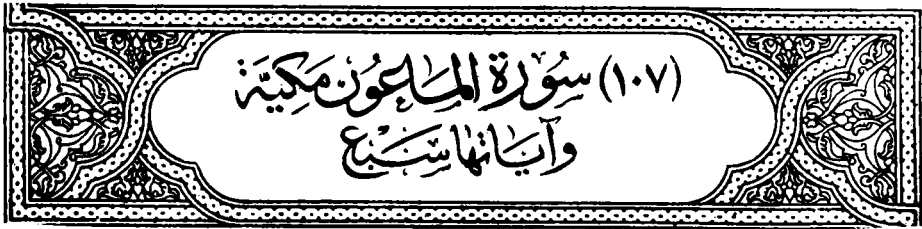 (١٠٧) سُورَة الماعون مَكيَّة
وآياتها سَبْع